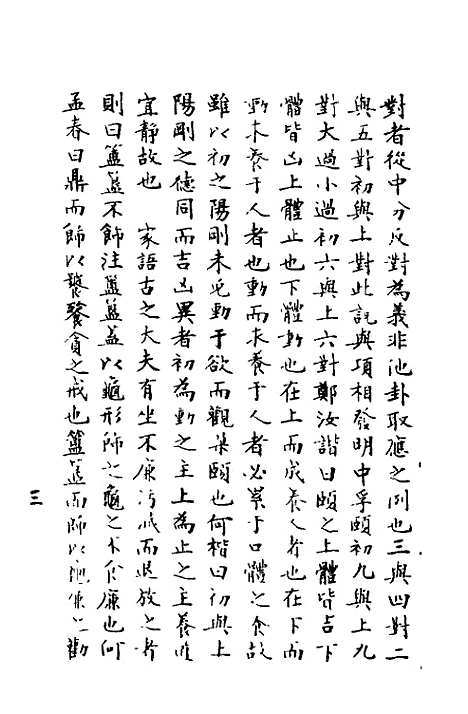 對者從中分反對為義非他卦取應之例也三與四對二
與五對初與上對此説與項相發明中孚頤初九與上九
對大過小過初六與上六對鄭汝諧曰頤之上體皆吉下
體皆凶上體止也下體動也在上而成養人者也在下而
動求養于人者也動而求養于人者必累于口體之食故
雖以初之陽剛未免動于欲而觀朶頤也何楷曰初與上
陽剛之德同而吉凶異者初為動之主上為止之主養道
宜靜故也 家語古之大夫有坐不廉污穢而退放之者
則曰簠簋不飾注簠簋葢以龜形飾之龜之不食廉也何
孟春曰鼎而飾以饕餮貪之戒也簠簋而飾以龜廉之勸
三